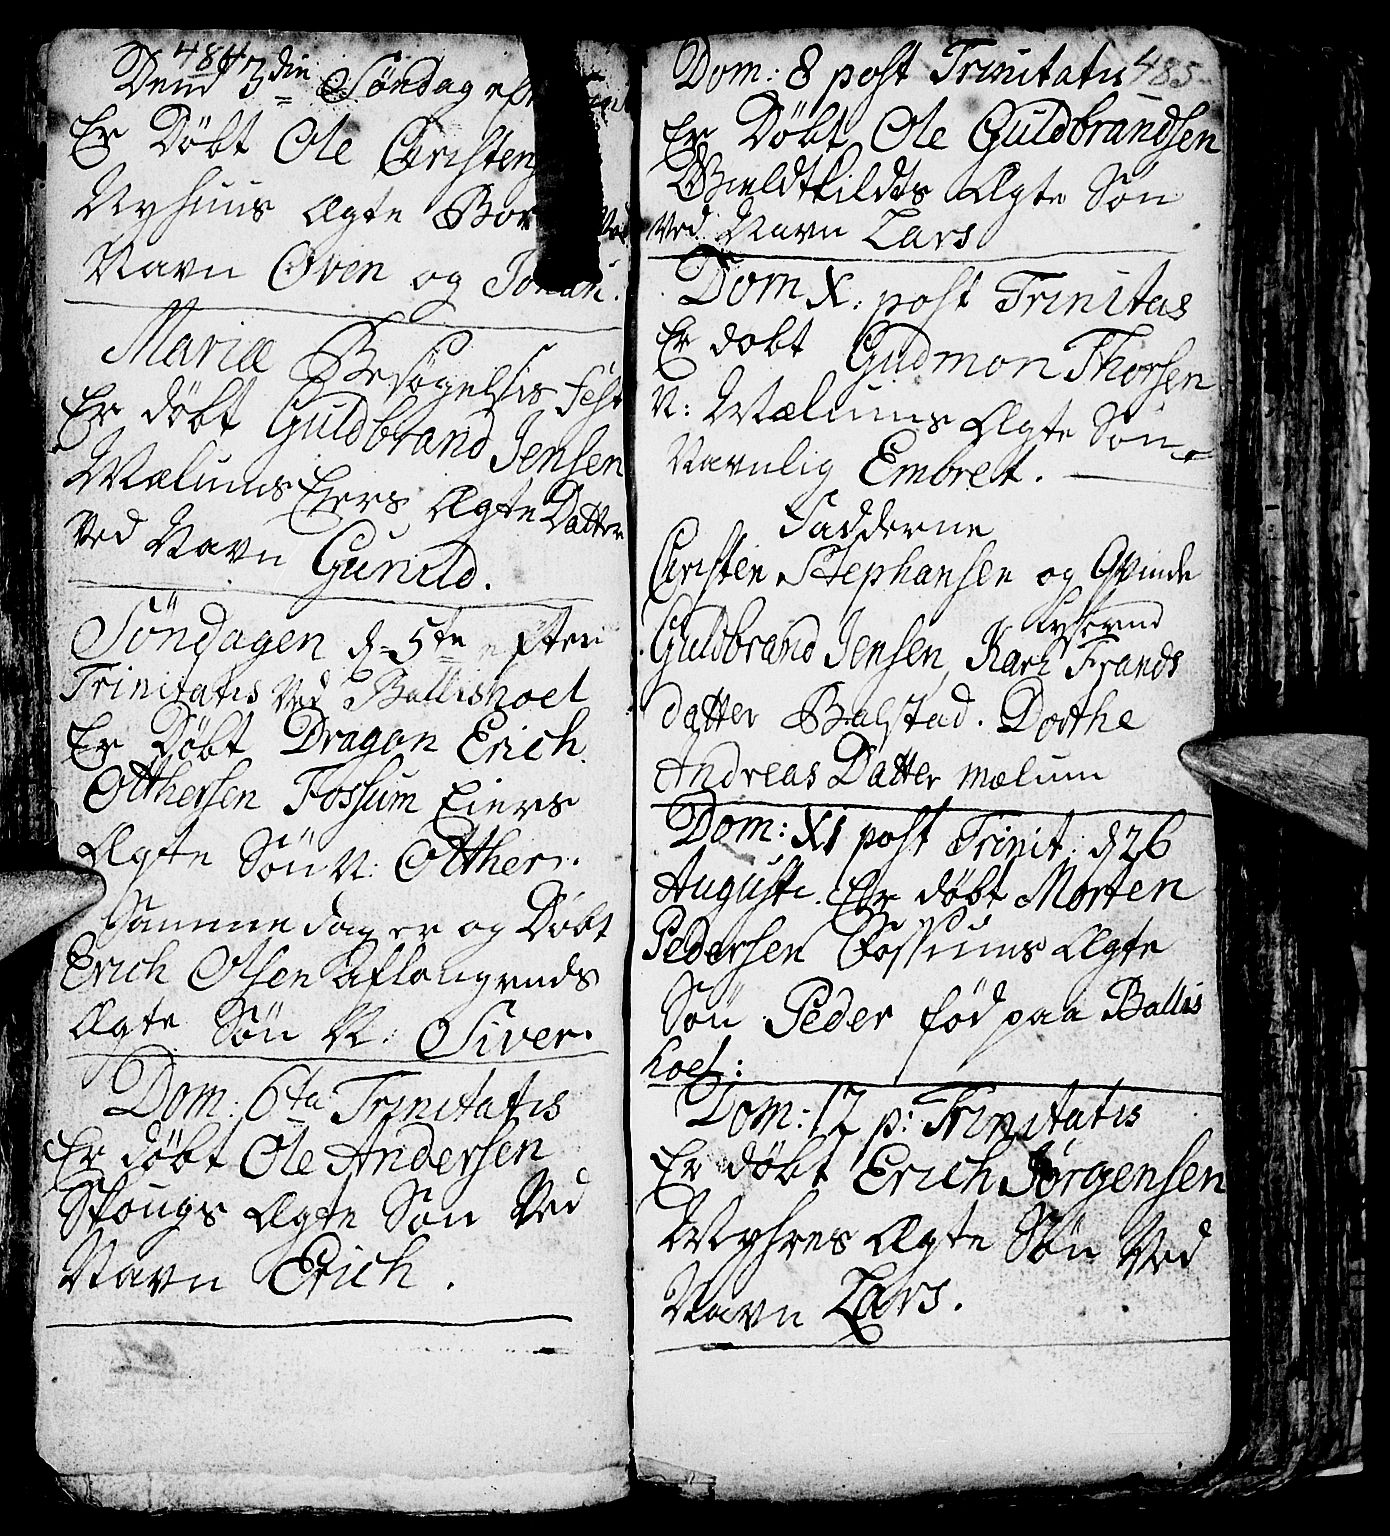 484
Dend 3die Søndag eft
Er Døbt Ole Christens
Nyhuus Ægte Bor Ved
Navn Even og Johan.
Mariæ Besøgelsis Fest
Er døbt Guldbrand Jensen
Mælums Eiers Ægte Datter
Ved Navn Gunild.
Søndagen d. 5te efter
Trinitatis Ved Ballishoel
Er Døbt Dragon Erich
Otthersen Fossum Eiers
Ægte Søn N: Otther.
Samme dag er og Døbt
Erich Olsen
Ægte Søn N: Siver.
Dom: 6ta Trinitatis
Er døbt Ole Andersen
Skougs Ægte Søn Ved
Navn Erich.
485
Dom: 8 post Trinitatis
Er Døbt Ole Guldbrandsen
Ægte Søn
Ved Navn Lars
Dom X: post Trinitas
Er dobt Gudmon Thorsen
N: Mælums Ægte Søn
Navnlig Embret.
Fadderne
Christen Stephansen og Qvinde
Guldbrand Jensen, Kari Frands
datter Balstad. Dorthe
Andreas Datter Mælum
Dom: XI post Trinit: d 26
Augusti. Er døbt Morten
Pedersen Fossums Ægte
Søn Peder fød paa Ballis
hoel:
Dom: 12 p: Trinitatis
Er døbt Erich Jørgensen
Myhres Ægte Søn Ved
Navn Lars.